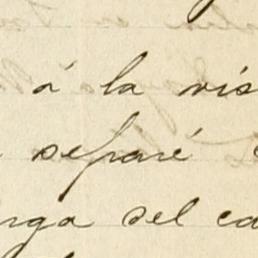 á la vis
separé
rga del ca